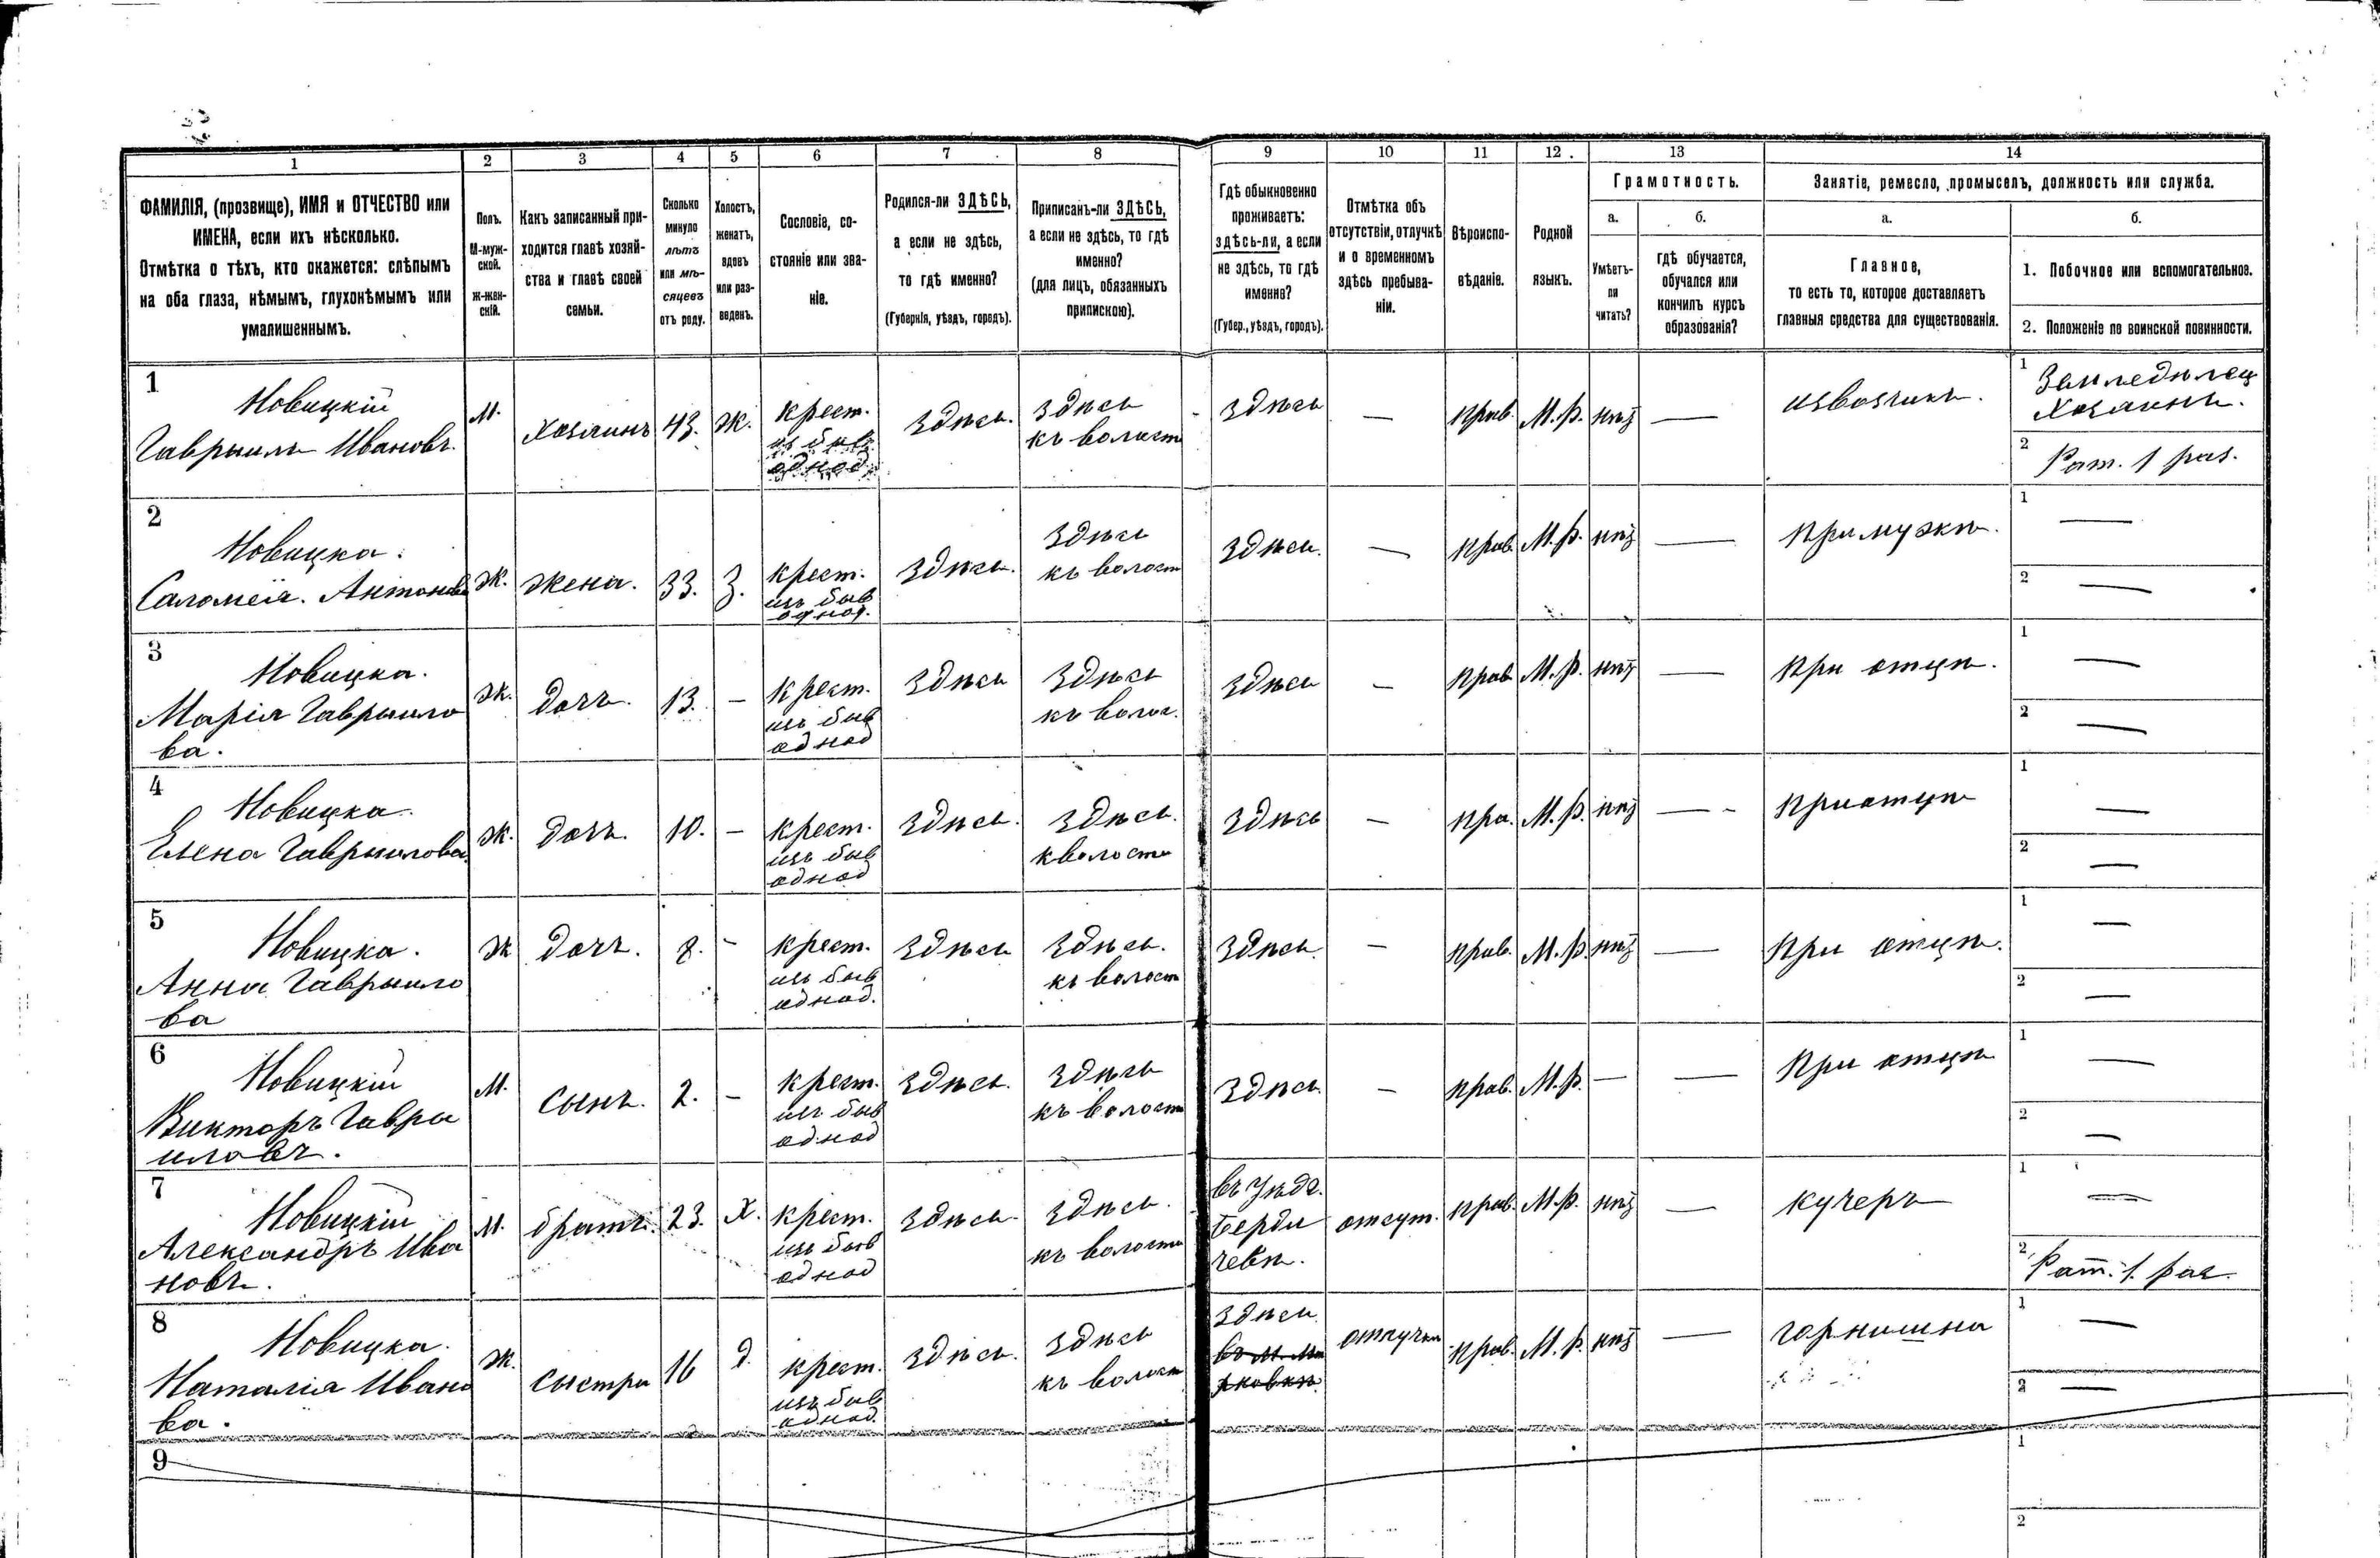 1 2 3 4 5 6 7 8 9 10 11 12. 13 14
ФАМИЛІЯ, (прозвище), ИМЯ и ОТЧЕСТВО или
ИМЕНА, если ихъ нѣсколько.
Отмѣтка о тѣхъ, кто окажется: слѣпымъ
на оба глаза, нѣмымъ, глухонѣмымъ или
умалишеннымъ.
Полъ.
М-муж-
ской.
Ж-жен-
скій.
Какъ записанный при-
ходится главѣ хозяй-
ства и главѣ своей
семьи.
Сколько
минуло
лѣтъ
или мѣ-
сяцевъ
отъ роду.
Холостъ,
женатъ,
вдовъ
или раз-
веденъ.
Сословіе, со-
стояніе или зва-
ніе.
Родился-ли ЗДѢСЬ,
а если не здѣсь,
то гдѣ именно?
(Губернія, уѣздъ, городъ).
Приписанъ-ли ЗДѢСЬ,
а если не здѣсь, то гдѣ
именно?
(для лицъ, обязанныхъ
припискою).
Гдѣ обыкновенно
проживаетъ:
здѣсь-ли, а если
не здѣсь, то гдѣ
именно?
(Губер., уѣздъ, городъ).
Отмѣтка объ
отсутствіи, отлучкѣ
и о временномъ
здѣсь пребыва-
ніи.
Вѣроиспо-
вѣданіе.
Родной
языкъ.
Грамотность.
а.
Умѣетъ-
ли
читать?
б.
гдѣ обучается,
обучался или
кончилъ курсъ
образованія?
Занятіе, ремесло, промыселъ, должность или служба.
а.
Главное,
то есть то, которое доставляетъ
главныя средства для существованія.
б.
1. Побочное или вспомогательное.
2. Положеніе по воинской повинности.
1
Новицкій
Гаврыилъ Ивановъ.
М.
Хозяинъ
43.
Ж.
крест.
изъ быв
однод.
здѣсь.
здѣсь
къ волост
здѣсь
—
прав.
М.р.
нѣт
—
извозчикъ.
1
Земледѣлец
Хозяинъ.
2
Рат. 1 раз.
2
Новицка.
Саломеія. Антонова
Ж.
жена.
33.
З.
крест.
изъ быв
однод.
здѣсь.
здѣсь
къ волост
здѣсь.
—
прав.
М.р.
нѣт
—
При мужѣ.
1
—
2
—
3
Новицка.
Марія Гаврыило
ва.
Ж.
дочь.
13.
—
крест.
изъ быв
однод
здѣсь
здѣсь
къ волос.
здѣсь
—
прав
М.р.
нѣт
—
При отцѣ.
1
—
2
—
4
Новицка.
Елена Гаврыилова.
Ж.
дочь.
10.
—
крест.
изъ быв
однод
здѣсь.
здѣсь.
к волости
здѣсь
—
пра.
М.р.
нѣт
—
При отцѣ
1
—
2
—
5
Новицка.
Анна Гаврыило
ва
Ж
дочь.
8.
—
крест.
изъ быв
однод.
здѣсь
здѣсь.
къ волост
здѣсь.
—
прав.
М.р.
нѣт
—
При отцѣ.
1
—
2
—
6
Новицкій
Викторъ Гавры
иловъ.
М.
сынъ.
2.
—
крест.
изъ быв
однод
здѣсь.
здѣсь
къ волост
здѣсь.
—
прав.
М.р.
—
—
При отцѣ
1
—
2
—
7
Новицкій
Александръ Ива
новъ.
М.
братъ.
23.
Х.
крест.
изъ быв
однод
здѣсь.
здѣсь.
къ волости
въ уѣзде.
Берди
чевѣ.
отсут.
прав.
М.р.
нѣт
—
кучеръ
1
—
2
Рат. 1. раз.
8
Новицка.
Наталія Ивано
ва.
Ж.
сыстра
16
Д.
крест.
изъ быв
однод.
здѣсь.
здѣсь
къ волост
здѣсь
отлучки
прав.
М.р.
нѣт
—
горнишна
1
—
2
—
9
1
2